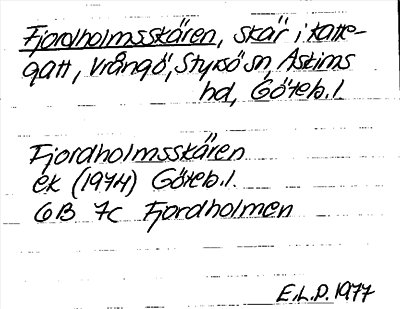 Fjordholmsskären, skär i Katte-
gatt, Vrångö, Styrsö sn, Askims
hd, Göteb. l.
Fjordholmsskären
ek (1974) Göteb. l.
6B 7c Fjordholmen
E.L.P. 1977